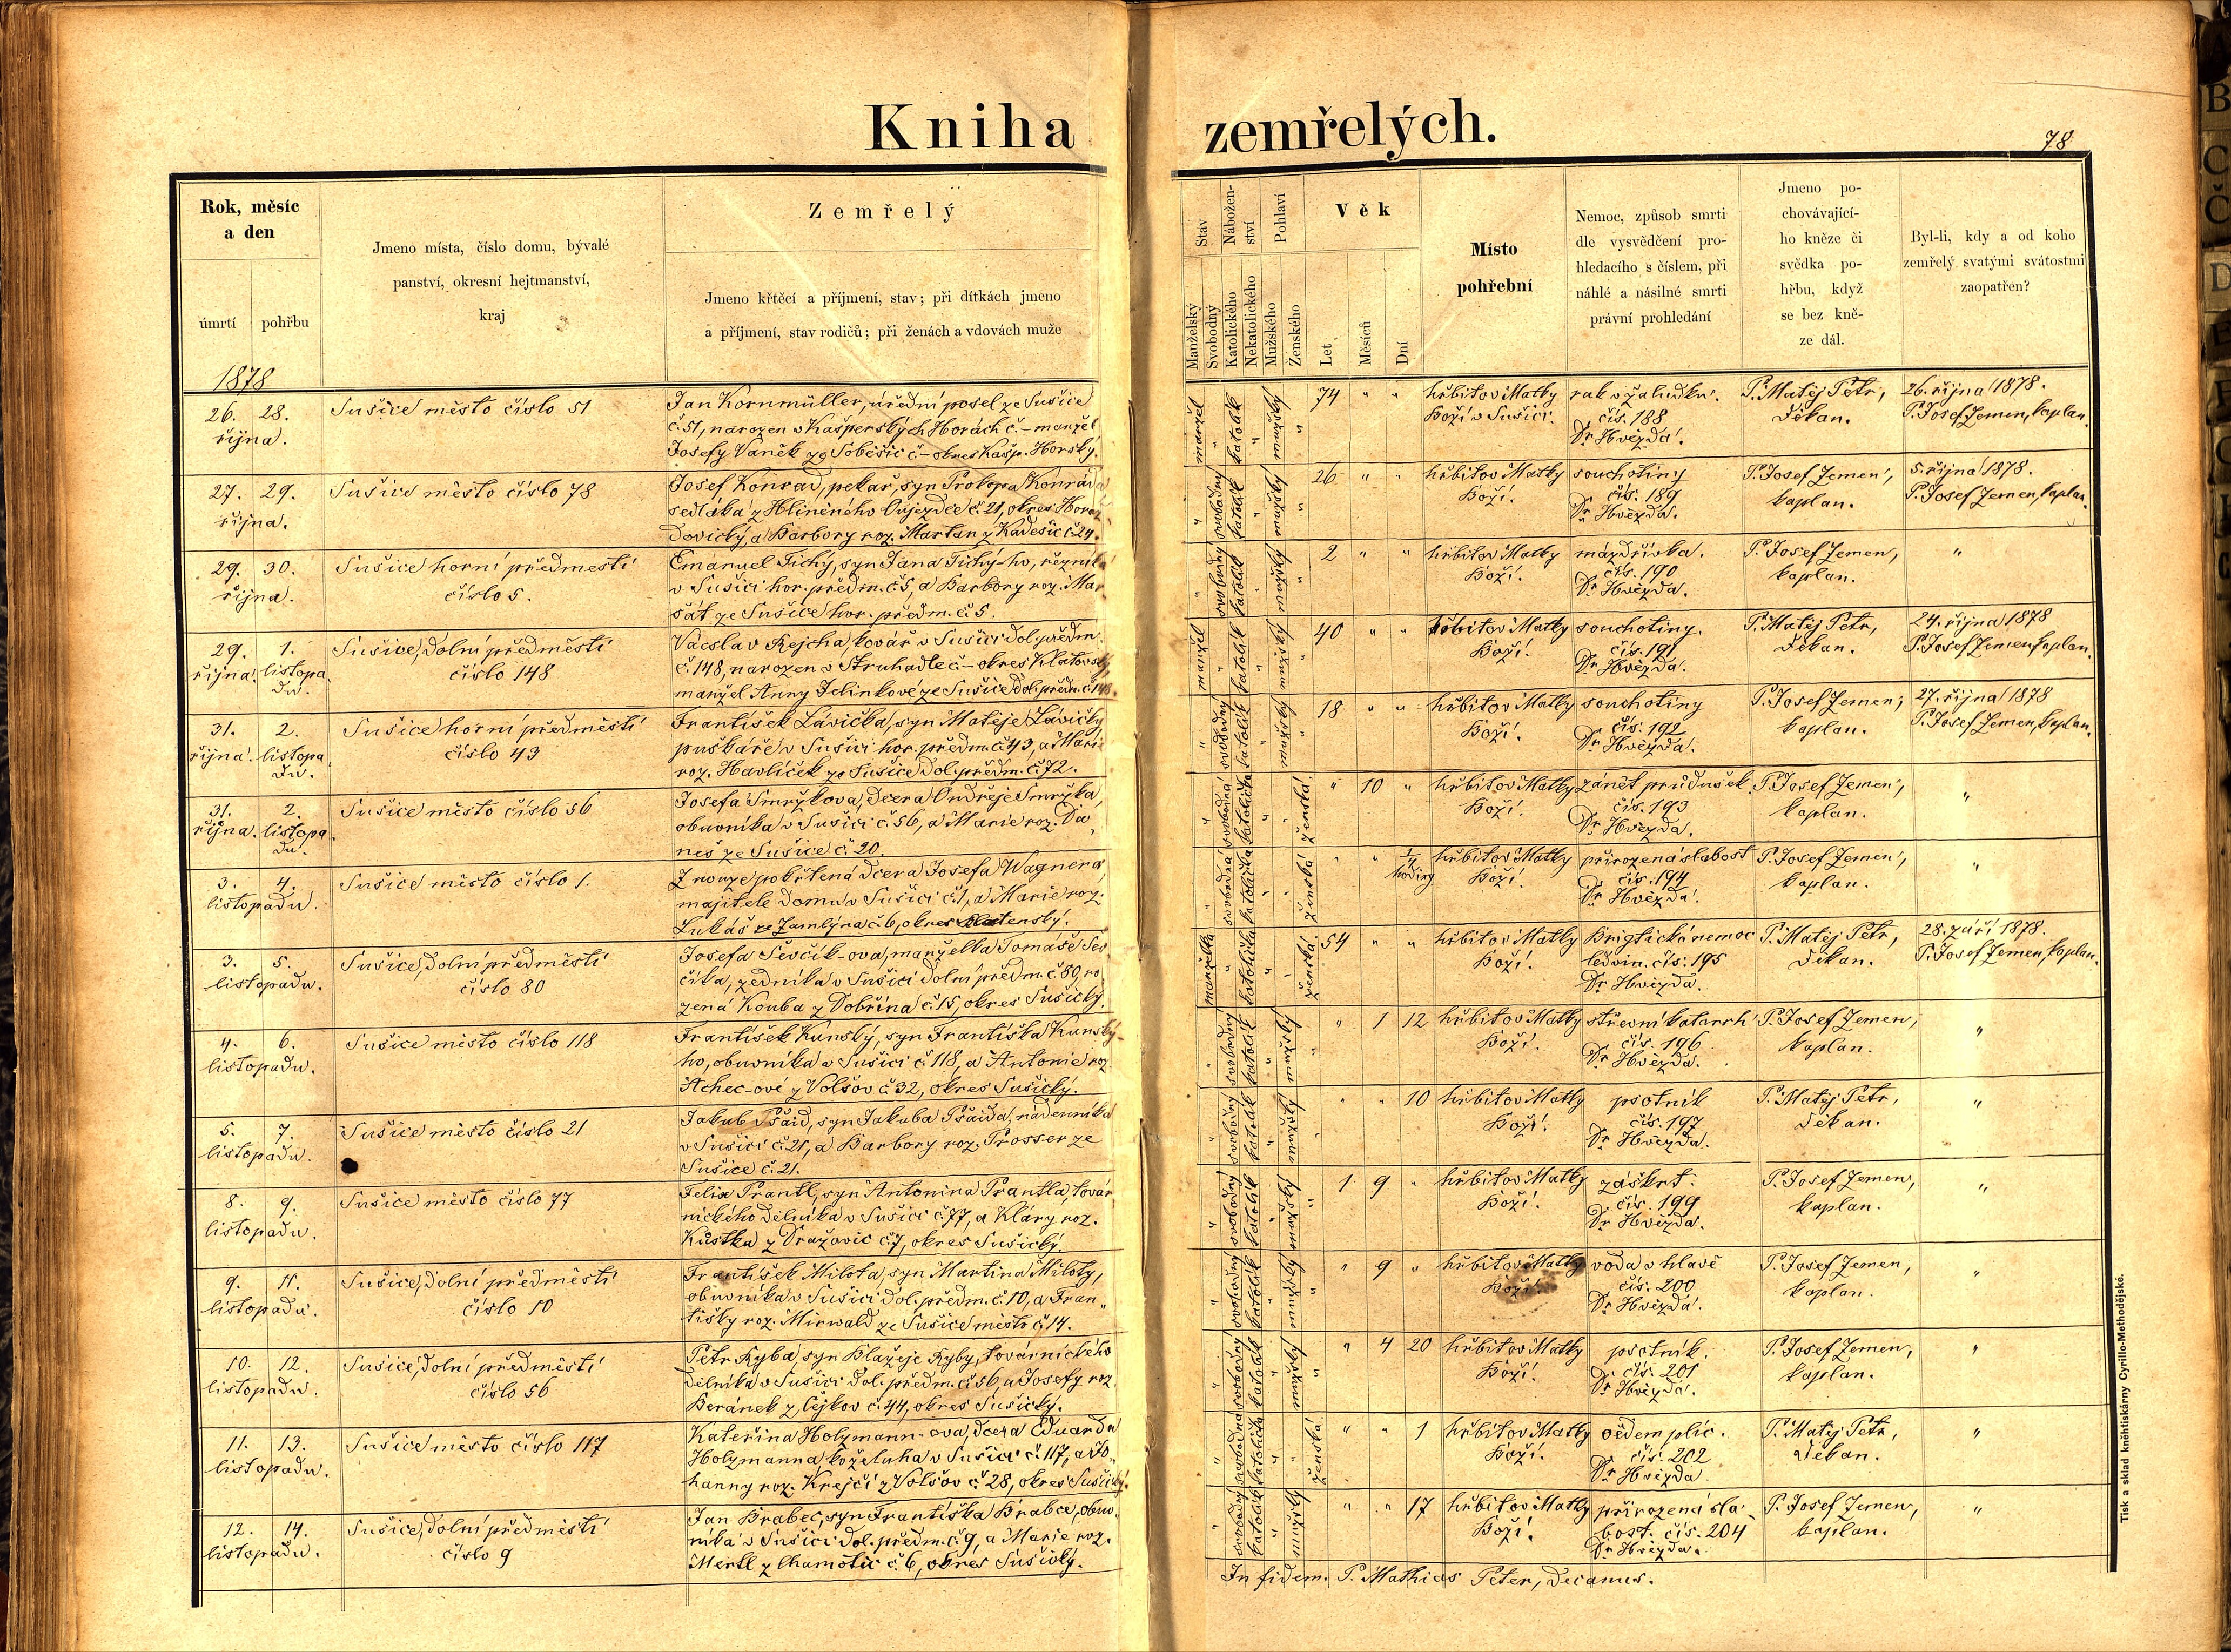 Kniha zemřelých.
78
Rok, měsíc
a den
úmrtí
pohřbu
Jmeno místa, číslo domu, bývalé
panství, okresní hejtmanství,
kraj
Zemřelý
Jmeno křtěcí a příjmení, stav; při dítkách jmeno
a příjmení, stav rodičů; při ženách a vdovách muže
Stav
Nábožen-
ství
Pohlaví
Manželský
Svobodný
Katolického
Nekatolického
Mužského
Ženského
Věk
Let
Měsíců
Dní
Místo
pohřební
Nemoc, způsob smrti
dle vysvědčení pro-
hledacího s číslem, při
náhlé a násilné smrti
právní prohledání
Jmeno po-
chovávající-
ho kněze či
svědka po-
hřbu, když
se bez kně-
ze dál.
Byl-li, kdy a od koho
zemřelý svatými svátostmi
zaopatřen?
1878
26. 28.
října.
Sušice město číslo 51
Jan Kornmüller, úřední posel ze Sušice
č. 51, narozen v Kašperských Horách č. – manžel
Josefy Vaněk ze Soběšic č – okres Kašp. Horský.
manžel " katolík " mužský "
74 " "
hřbitov Matky
Boží v Sušici.
rak v žaludku.
čís. 188
Dr Hvězda.
P. Matěj Petr,
děkan.
26. října 1878.
P. Josef Zemen, kaplan.
27. 29.
října.
Sušice město číslo 78
Josef Konrad, pekař, syn Prokopa Konráda
sedláka z Hliněného Oujezdce č. 21, okres Horaž-
dovický, a Barbory roz. Martan z Kadešic č. 24.
" svobodný katolík " mužský "
26 " "
hřbitov Matky
Boží.
souchotiny
čís. 189
Dr Hvězda.
P. Josef Zemen,
kaplan.
5. října 1878.
P. Josef Zemen, kaplan.
29. 30.
října.
Sušice horní předmestí
číslo 5.
Emanuel Tichý, syn Jana Tichý-ho, řezníka
v Sušici hor. předm. č. 5, a Barbory roz. Mar
šát ze Sušice hor. předm. č. 5.
" svobodný katolík " mužský "
2 " "
hřbitov Matky
Boží.
mázdřivka.
čís. 190
Dr Hvězda.
P. Josef Zemen,
kaplan.
"
29. 1.
října. listopa
du.
Sušice, dolní předměstí
číslo 148
Vácslav Rejcha, kovář v Sušici dol. předm.
č. 148, narozen v Struhadle č – okres Klatovský,
manžel Anny Jelinkové ze Sušice dol. předm. č. 148.
manžel " katolík " mužský "
40 " "
hřbitov Matky
Boží.
souchotiny.
čís. 191
Dr Hvězda.
P. Matěj Petr,
děkan.
24. října 1878
P. Josef Zemen kaplan.
31. 2.
října. listopa
du.
Sušice horní předměstí
číslo 43
František Lávička, syn Matěje Lávičky
puškaře v Sušici hor. předm. č. 43, a Marie
roz. Havlíček ze Sušice dol. předm. č. 72.
" svobodný katolík " mužský "
18 " "
hřbitov Matky
Boží.
souchotiny
čís. 192
Dr Hvězda.
P. Josef Zemen,
kaplan.
27. října 1878
P. Josef Zemen, kaplan.
31. 2.
října. listopa
du.
Sušice město číslo 56
Josefa Smržkova, dcera Ondřeje Smržka,
obuvníka v Sušici č. 56, a Marie roz. Da
neš ze Sušice č. 20.
" svobodná katolička " " ženská
" 10 "
hřbitov Matky
Boží.
zánět průdušek.
čís. 193
Dr Hvězda.
P. Josef Zemen,
kaplan.
"
3. 4.
listopadu.
Sušice město číslo 1.
Z nouze pokřtená dcera Josefa Wagnera,
majitele domu v Sušici č. 1, a Marie roz.
Lukáš ze Zamlýna č. 6, okres Blatenský.
" svobodná katolička " " ženská
hodiny
hřbitov Matky
Boží.
přirozená slabost
čís. 194
Dr Hvězda.
P. Josef Zemen,
kaplan.
"
3. 5.
listopadu.
Sušice, dolní předměstí
číslo 80
Josefa Ševčík-ova, manželka Tomáše Šev
číka, zedníka v Sušici dolní předm. č. 80, ro
zená Kouba z Dobřína č. 15, okres Sušický.
manželka " katolička " " ženská
54 " "
hřbitov Matky
Boží.
Brigtická nemoc
ledvin. čís. 195
Dr Hvězda.
P. Matěj Petr,
děkan.
28. září 1878.
P. Josef Zemen, kaplan.
4. 6.
listopadu.
Sušice město číslo 118
František Kunský, syn Františka Kunský-
ho, obuvníka v Sušici č. 118, a Antonie roz.
Achec-ové z Volšov č. 32, okres Sušický.
" svobodný katolík " mužský "
" 1 12
hřbitov Matky
Boží.
střevní katarrh
čís. 196
Dr Hvězda.
P. Josef Zemen,
kaplan.
"
5. 7.
listopadu.
Sušice město číslo 21
Jakub Pšaid, syn Jakuba Pšaida, nádenníka
v Sušici č. 21, a Barbory roz. Prosser ze
Sušice č. 21.
" svobodný katolík " mužský "
" " 10
hřbitov Matky
Boží.
psotník
čís. 197
Dr Hvězda.
P. Matěj Petr,
děkan.
"
8. 9.
listopadu.
Sušice město číslo 77
Felix Prantl, syn Antonína Prantla, továr
nického dělníka v Sušici č. 77, a Kláry roz.
Kůstka z Dražovic č. 7, okres Sušický.
" svobodný katolík " mužský "
1 9 "
hřbitov Matky
Boží.
záškrt.
čís. 199
Dr Hvězda.
P. Josef Zemen,
kaplan.
"
9. 11.
listopadu.
Sušice, dolní předměstí
číslo 10
František Milota, syn Martina Miloty,
obuvníka v Sušici dol. předm. č. 10, a Fran-
tišky roz. Mirwald ze Sušice město č. 14.
" svobodný katolík " mužský "
" 9 "
hřbitov Matky
Boží.
voda v hlavě
čís. 200
Dr Hvězda.
P. Josef Zemen,
kaplan.
"
10. 12.
listopadu.
Sušice, dolní předměstí
číslo 56
Petr Ryba, syn Blažeje Ryby, továrnického
dělníka v Sušici dol. předm. č. 56, a Josefy roz.
Beránek z Čejkov č. 44, okres Sušický.
" svobodný katolík " mužský "
" 4 20
hřbitov Matky
Boží.
psotník.
čís. 201
Dr Hvězda.
P. Josef Zemen,
kaplan.
"
11. 13.
listopadu.
Sušice město číslo 117
Kateřina Holzmann-ova, dcera Eduarda
Holzmanna, koželuha v Sušici č. 117, a Jo-
hanny roz. Krejčí z Volšov č. 28, okres Sušický.
" svobodná katolička " " ženská
" " 1
hřbitov Matky
Boží.
oedem plic.
čís. 202
Dr Hvězda.
P. Matěj Petr,
děkan.
"
12. 14.
listopadu.
Sušice, dolní předměstí
číslo 9
Jan Brabec, syn Františka Brabce, obuv-
níka v Sušici dol. předm. č. 9, a Marie roz.
Mertl z Chamotic č. 6, okres Sušický.
" svobodný katolík " mužský
" " 17
hřbitov Matky
Boží.
přirozená sla-
bost. čís. 204
Dr Hvězda.
P. Josef Zemen,
kaplan.
"
In fidem. P. Mathias Peter, Decanus.
Tisk a sklad kněhtiskárny Cyrillo-Methodějské.